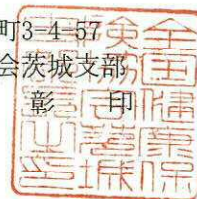 町3-4-57
会茨城支部
彰　印
全国健康保
険協会茨城
支部長之印